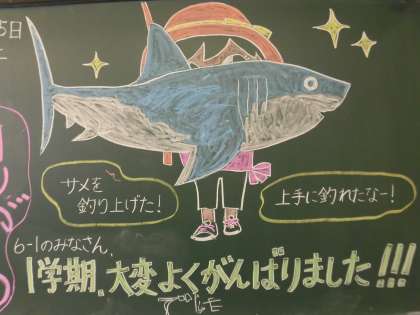 5日
サメを
釣り上げた!
上手に釣れたなー!
6-1のみなさん、
1学期、大変よくがんばりました!!!